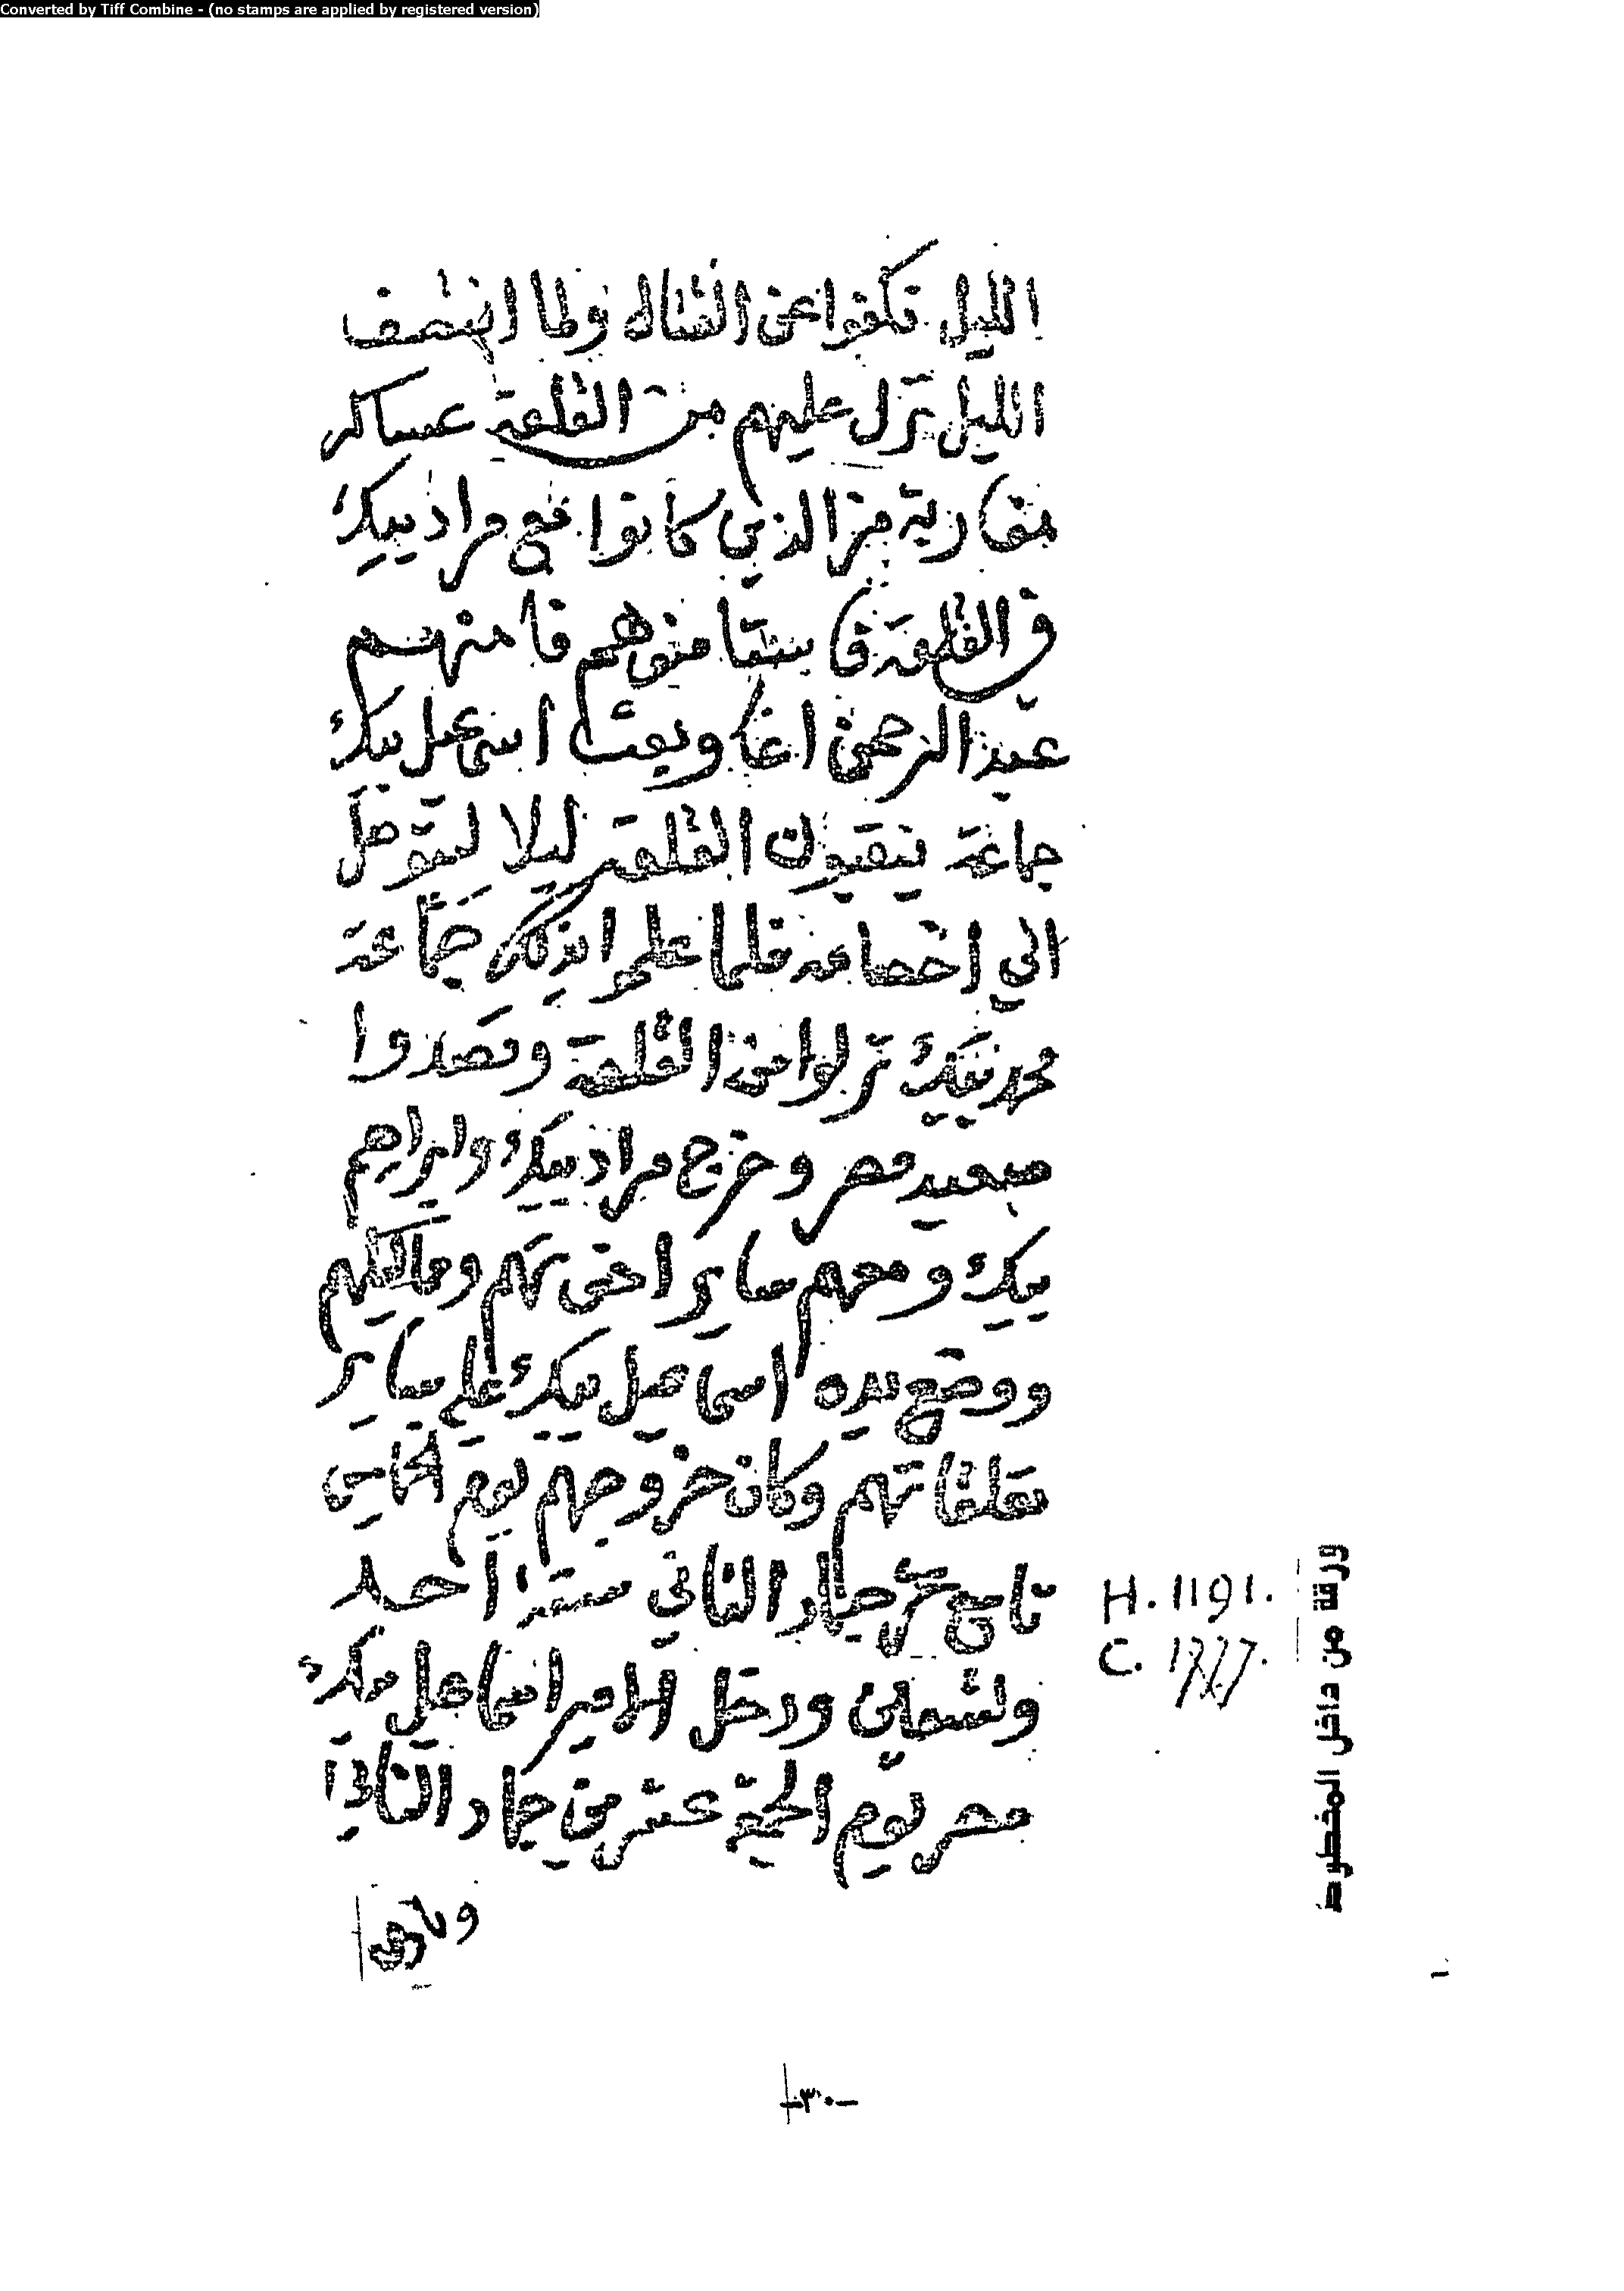 Converted by Tiff Combine - (no stamps are applied by registered version)
الليل فكفوا عن القتال ولما انتصف
الليل نزل عليهم من القلعة عساكر
مغاربة من الذي كانوا مع مراد بيك
في القلعة فاستامنوهم فامنهم
عبد الرحمن اغا وبعث اسماعيل بيك
جماعة ينقبون القلعة ليلا ليتوصل
الي اخصامه فلما علموا بذلك جماعة
محمد بيك نزلوا من القلعة وقصدوا
صعيد مصر وخرج مراد بيك وابراهيم
بيك ومعهم ساير اخواتهم ومماليكهم
ووضع يده اسماعيل بيك علي ساير
تعلقاتهم وكان خروجهم يوم الخامس
تاسع عشر جماد الثاني سنة احد
وتسعين ودخل الامير اسماعيل بيك
مصر يوم عشر من جماد الثاني
H. 1191.
C. 1777.
ورقة من داخل المخطوط
-٣٠-